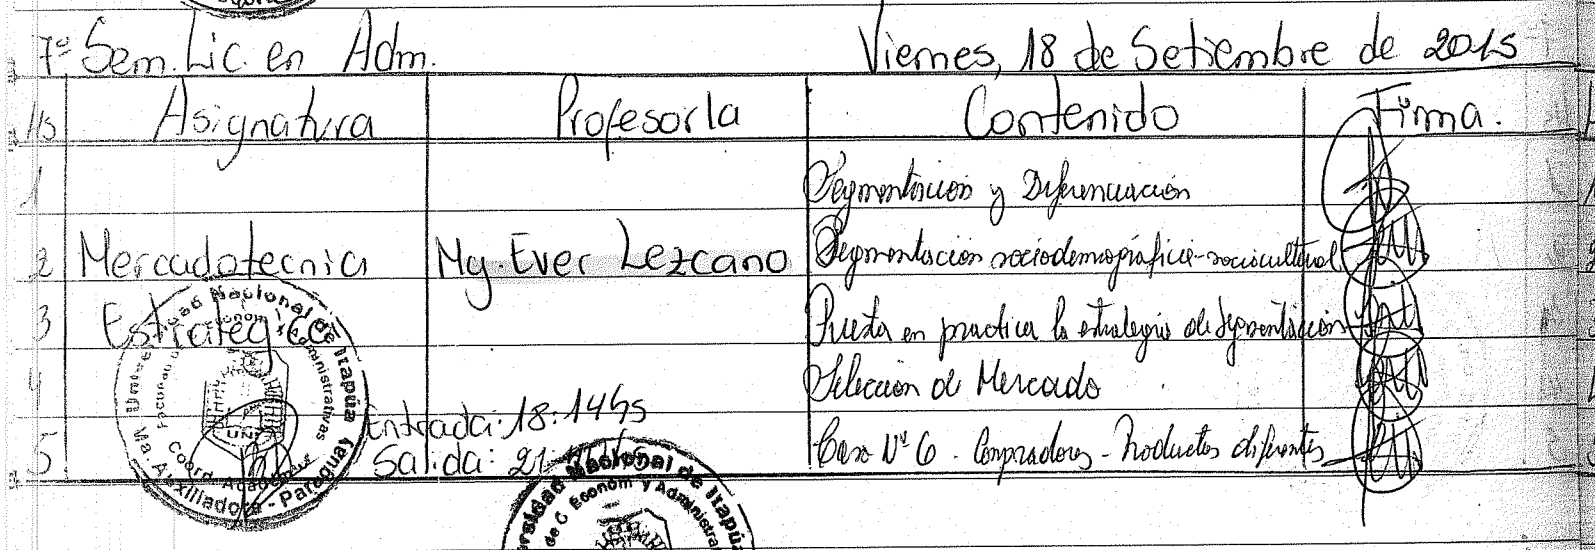 7º Sem. Lic. en Adm. Viernes, 18 de Setiembre de 2015
Hs Asignatura Profesor/a Contenido Firma.
1 Segmentación y Diferenciación
2 Mercadotecnia Mg. Ever Lezcano Segmentación sociodemográfica-sociocultural
3 Estratégica Puesta en practica la estrategia de segmentación
4 Selección de Mercado
Entrada: 18:14hs
5 Salida: 21: Caso Nº 6 - Compradores - Productos diferentes
Universidad Nacional de Itapúa
Facultad de Econom y Administrativas
UNI
Coord. Académica
Ma. Auxiliadora - Paraguay
Universidad Nacional de Itapúa
de C. Econom y Administra